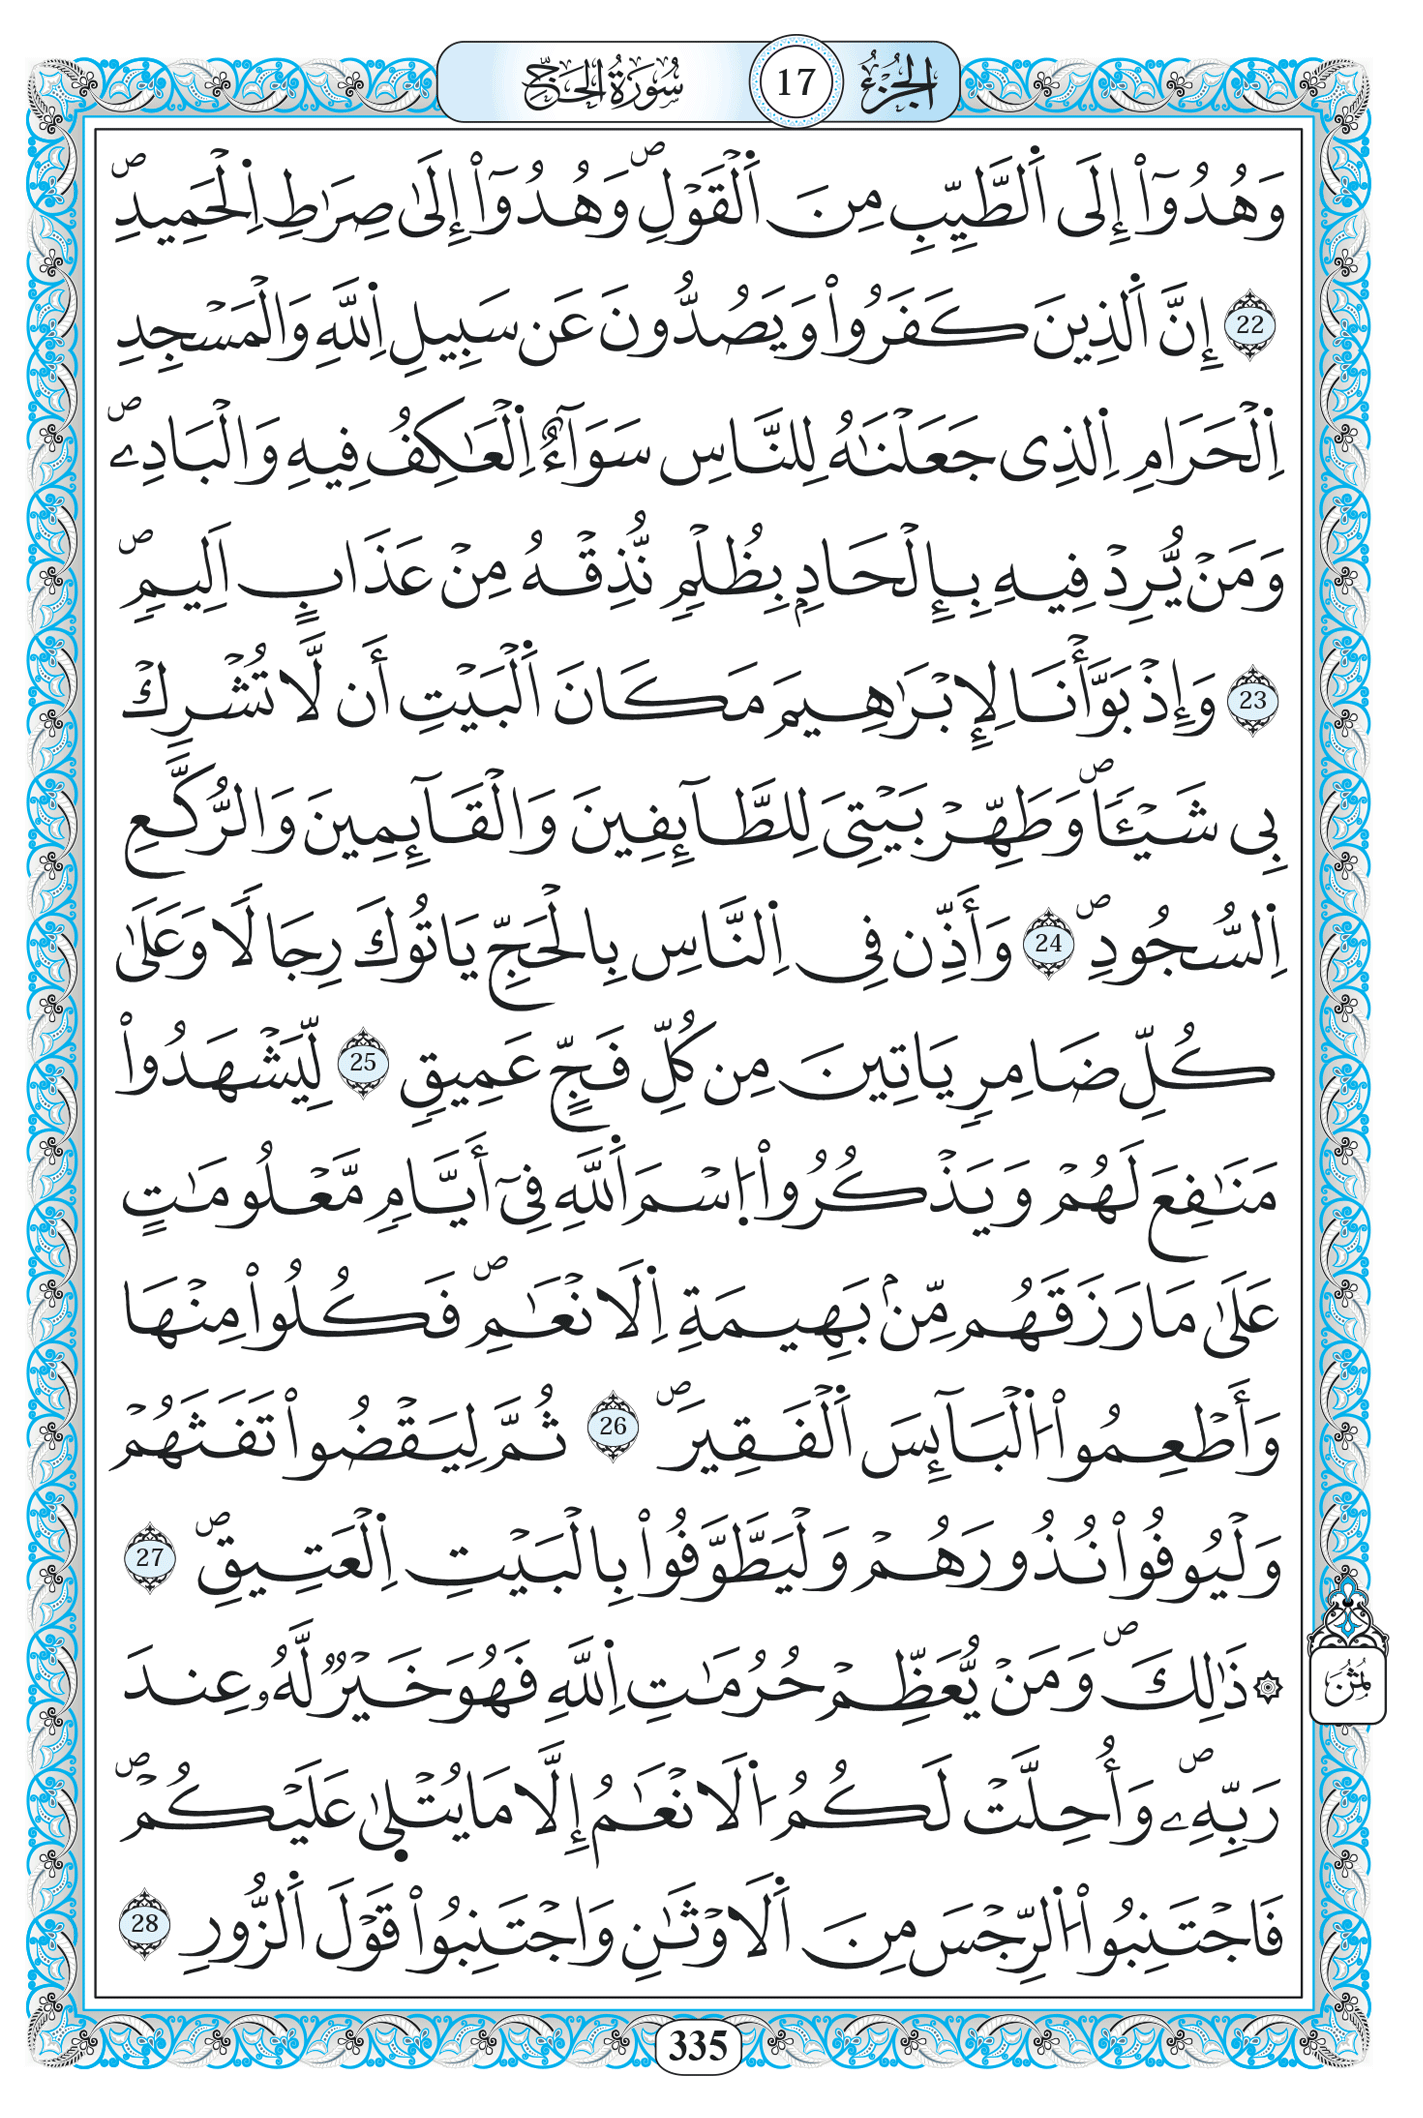 الجزء 17 سورة الحج
وَهُدُوٓاْ إِلَى اَ۬لطَّيِّبِ مِنَ اَ۬لْقَوْلِۖ وَهُدُوٓاْ إِلَىٰ صِرَٰطِ اِ۬لْحَمِيدِۖ
22 إِنَّ اَ۬لذِينَ كَفَرُواْ وَيَصُدُّونَ عَن سَبِيلِ اِ۬للَّهِ وَالْمَسْجِدِ
اِ۬لْحَرَامِ اِ۬لذِى جَعَلْنَٰهُ لِلنَّاسِ سَوَآءٌ اِ۬لْعَٰكِفُ فِيهِ وَالْبَادِۦۖ
وَمَنْ يُّرِدْ فِيهِ بِإِلْحَادِۢ بِظُلْمٖ نُّذِقْهُ مِنْ عَذَابٍ اَلِيمٖۖ
23 وَإِذْ بَوَّأْنَا لِإِبْرَٰهِيمَ مَكَانَ اَ۬لْبَيْتِ أَن لَّا تُشْرِكْ
بِى شَيْـٔاٗۖ وَطَهِّرْ بَيْتِىَ لِلطَّآئِفِينَ وَالْقَآئِمِينَ وَالرُّكَّعِ
اِ۬لسُّجُودِۖ 24 وَأَذِّن فِى اِ۬لنَّاسِ بِالْحَجِّ يَاتُوكَ رِجَالاٗ وَعَلَىٰ
كُلِّ ضَامِرٖ يَاتِينَ مِن كُلِّ فَجٍّ عَمِيقٖ 25 لِّيَشْهَدُواْ
مَنَٰفِعَ لَهُمْ وَيَذْكُرُواْ اُ۪سْمَ اَ۬للَّهِ فِىٓ أَيَّامٖ مَّعْلُومَٰتٍ
عَلَىٰ مَا رَزَقَهُم مِّنۢ بَهِيمَةِ اِ۬لَانْعَٰمِۖ فَكُلُواْ مِنْهَا
وَأَطْعِمُواْ اُ۬لْبَآئِسَ اَ۬لْفَقِيرَۖ 26 ثُمَّ لِيَقْضُواْ تَفَثَهُمْ
وَلْيُوفُواْ نُذُورَهُمْ وَلْيَطَّوَّفُواْ بِالْبَيْتِ اِ۬لْعَتِيقِۖ 27
۞ ذَٰلِكَۖ وَمَنْ يُّعَظِّمْ حُرُمَٰتِ اِ۬للَّهِ فَهُوَ خَيْرٞ لَّهُۥ عِندَ
رَبِّهِۦۖ وَأُحِلَّتْ لَكُمُ اُ۬لَانْعَٰمُ إِلَّا مَا يُتْلَىٰ عَلَيْكُمْۖ
فَاجْتَنِبُواْ اُ۬لرِّجْسَ مِنَ اَ۬لَاوْثَٰنِ وَاجْتَنِبُواْ قَوْلَ اَ۬لزُّورِ 28
ثُمُنُ
335